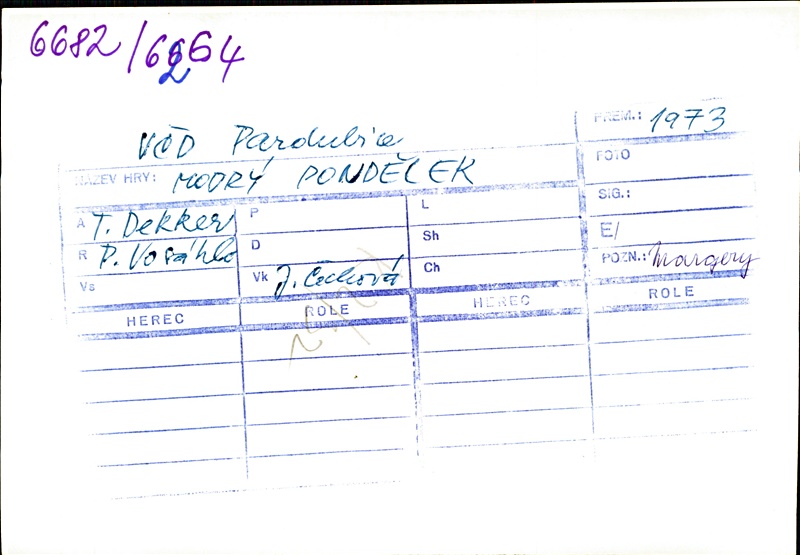 6682/62664
VČD Pardubice
PREM.: 1973
NÁZEV HRY: MODRÝ PONDĚLEK
FOTO
A T. Dekker P L SIG.:
R P. Vosáhlo D Sh E/
Vs Vk J. Čechová Ch POZN.: Margery
HEREC ROLE HEREC ROLE